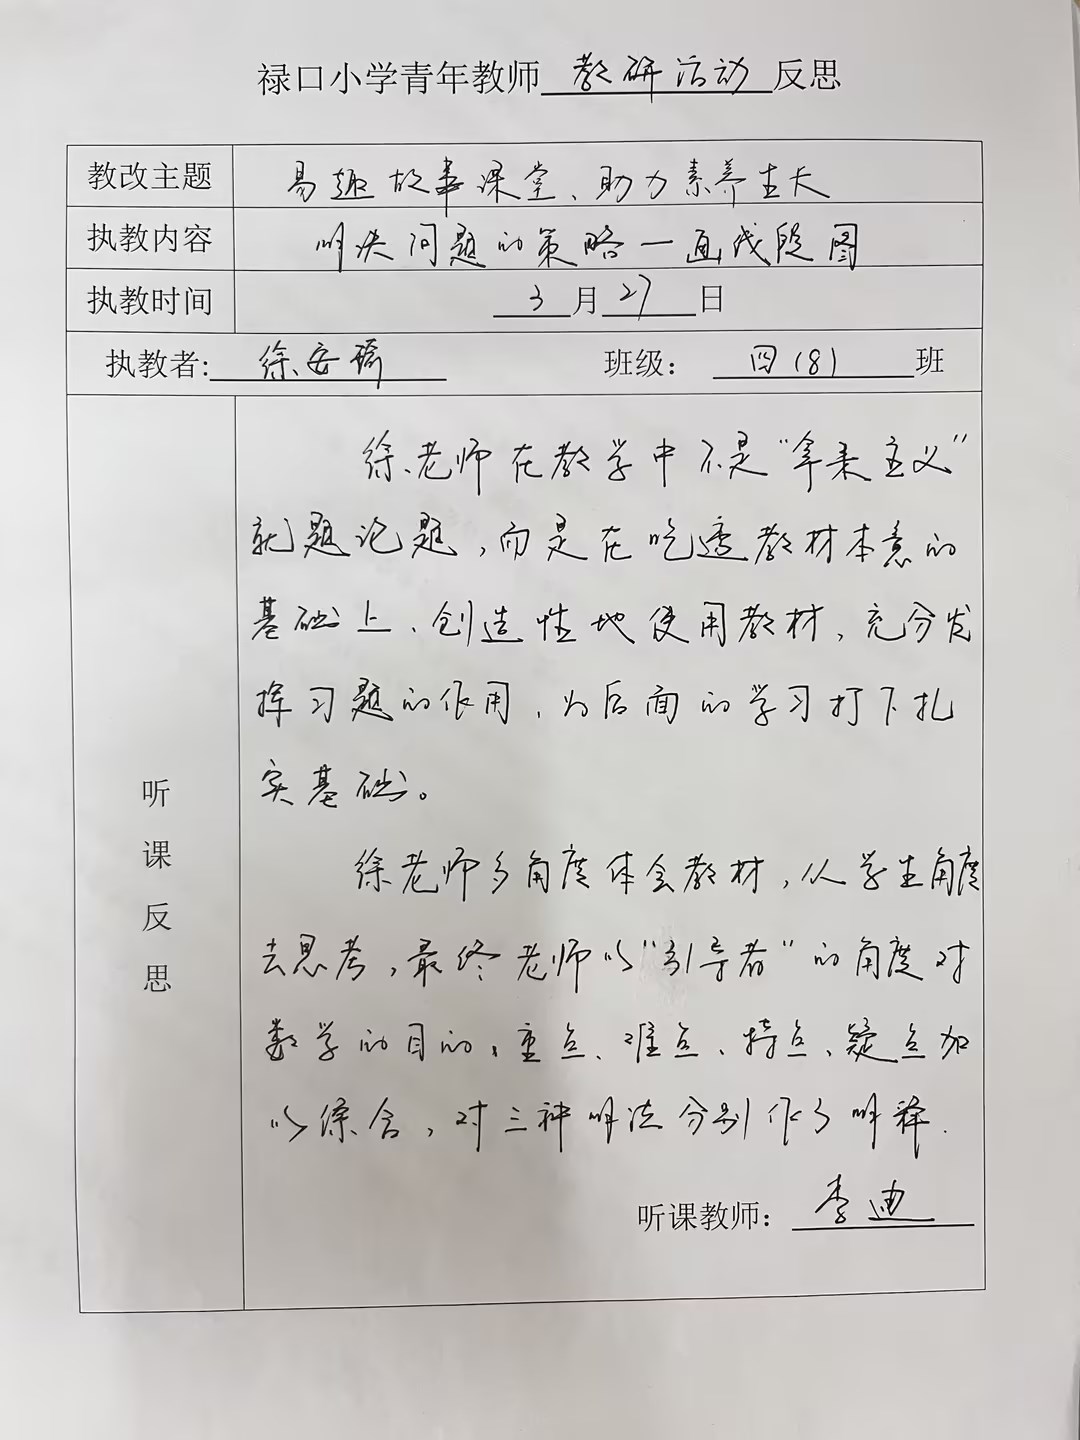 禄口小学青年教师教研活动反思
教改主题 易趣故事课堂、助力素养生长
执教内容 解决问题的策略—画线段图
执教时间 3月27日
执教者:徐安 班级：四(8)班
听课反思
徐老师在教学中不是“拿来主义”
就题论题，而是在吃透教材本意的
基础上、创造性地使用教材，充分发
挥习题的作用，为后面的学习打下扎
实基础。
徐老师多角度体会教材，从学生角度
去思考，最终老师以“引导者”的角度对
数学的目的、重点、难点、特点、疑点加
以综合，对三种解法分别作了解释.
听课教师：李迪